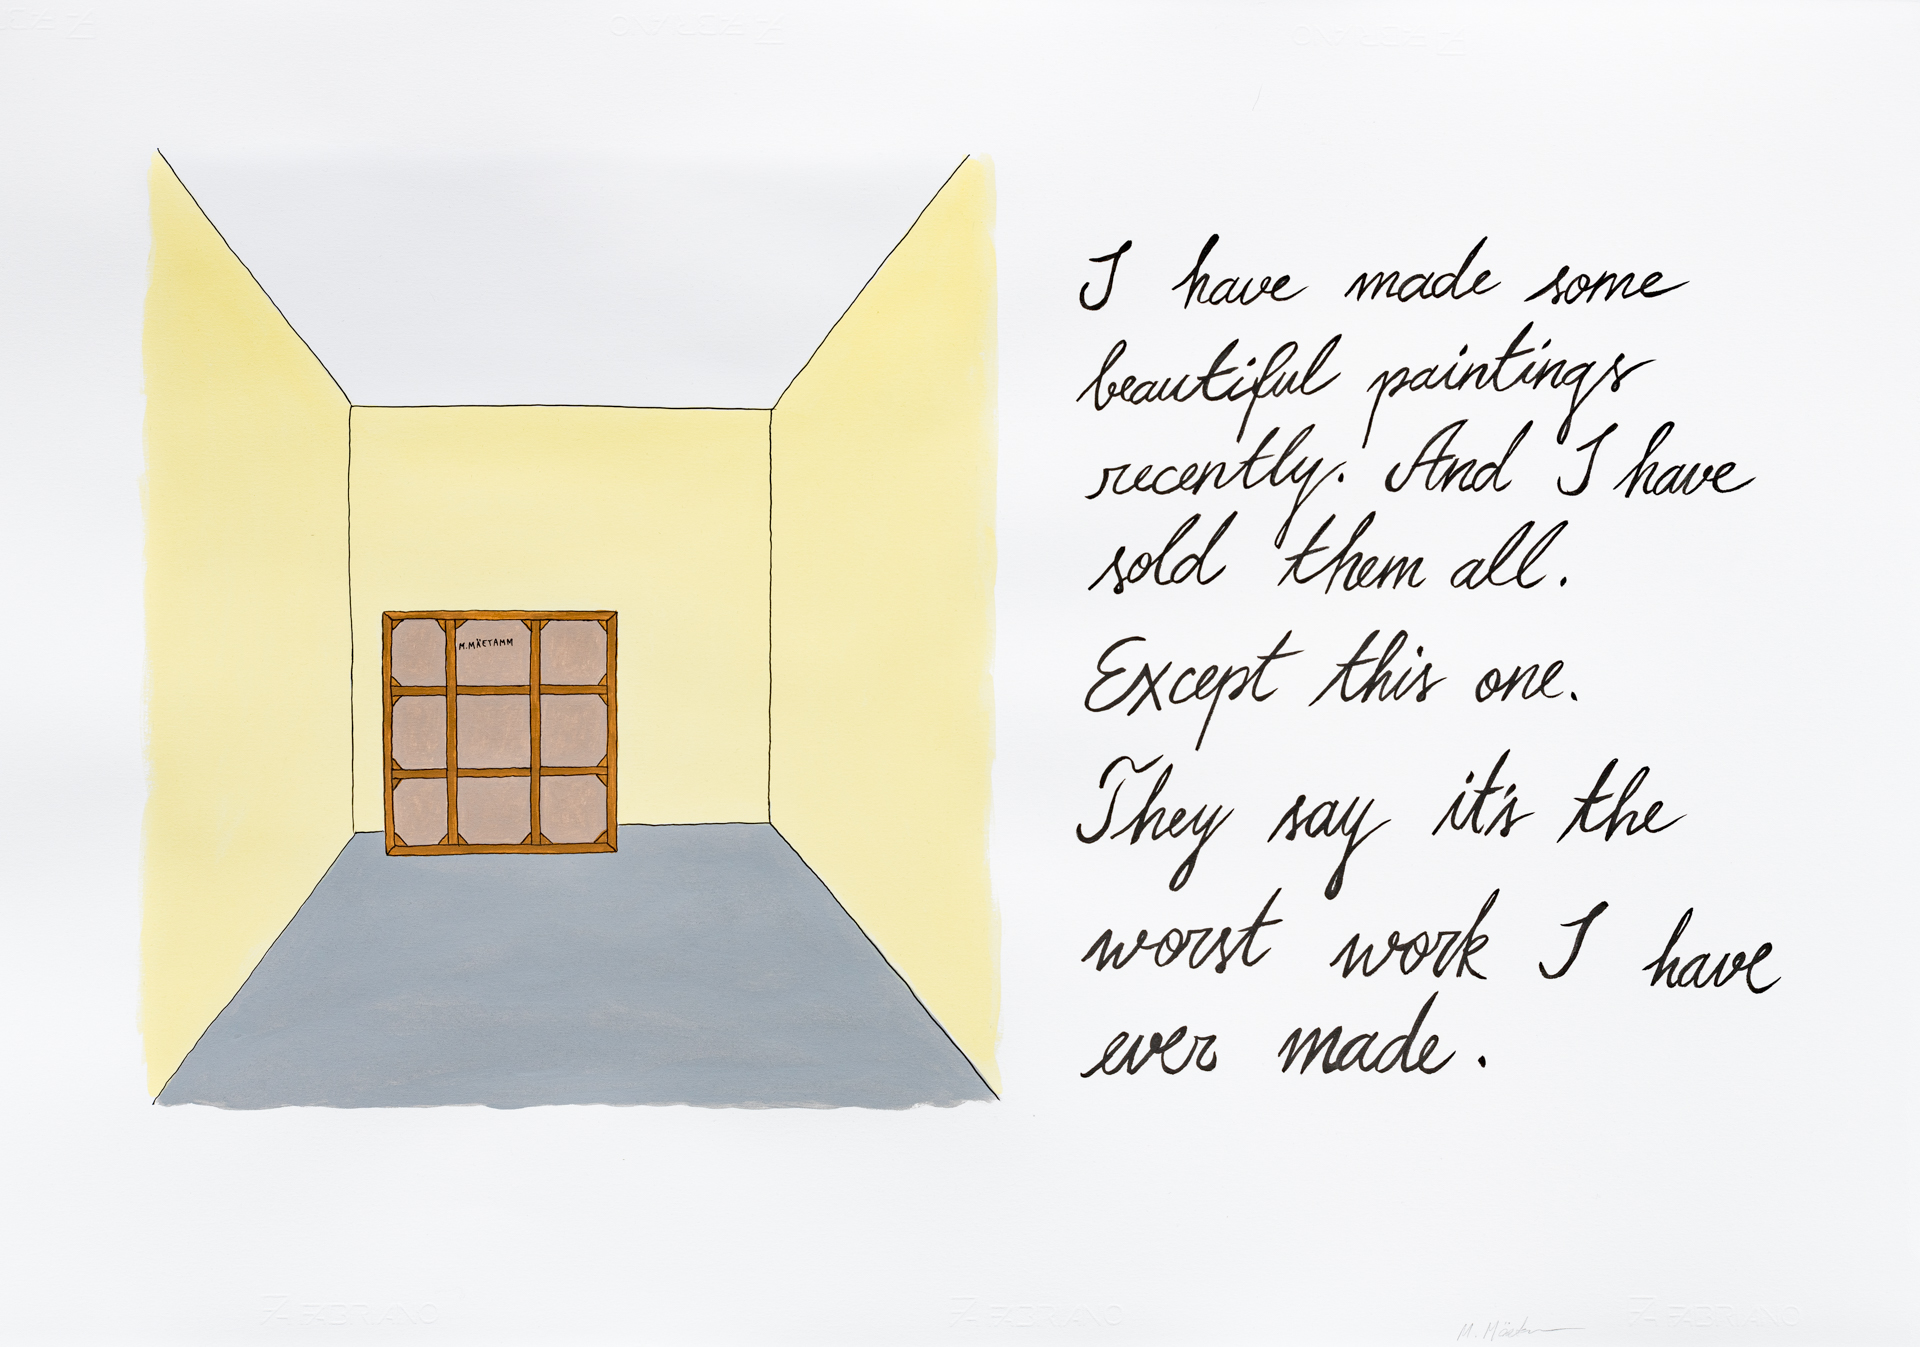 FABRIANO
FABRIANO
M.MÄETAMM
I have made some
beautiful paintings
recently. And I have
sold them all.
Except this one.
They say it's the
worst work I have
ever made.
FABRIANO
FABRIANO
FABRIANO